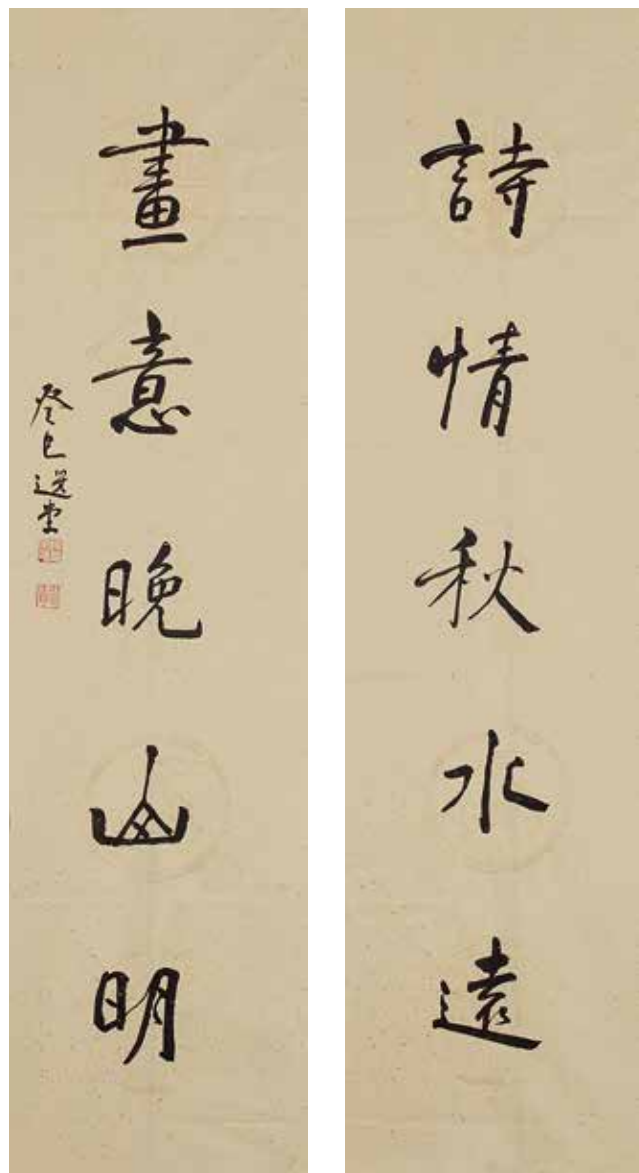 詩情秋水遠
畫意晚山明
癸巳選堂